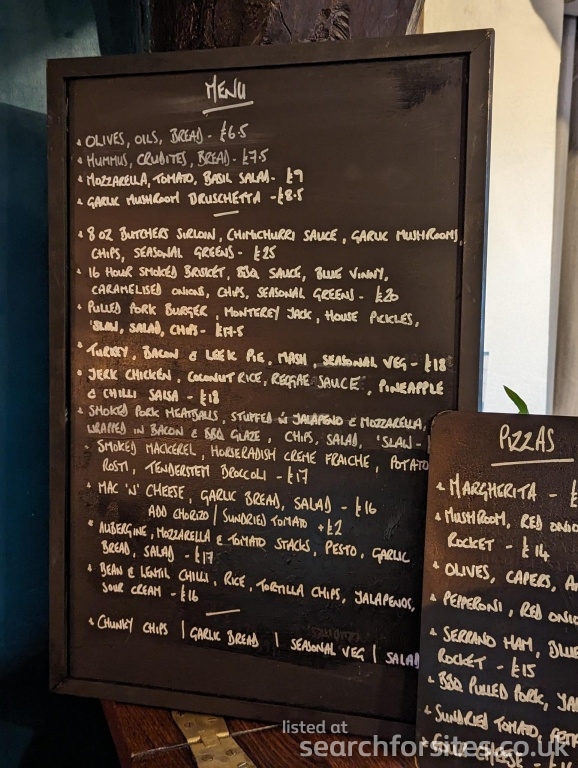 MENU
OLIVES, OILS, BREAD - £6.5
HUMMUS, CRUDITES, BREAD - £7.5
MOZZARELLA, TOMATO, BASIL SALAD - £9
GARLIC MUSHROOM BRUSCHETTA - £8.5
8 OZ BUTCHERS SIRLOIN, CHIMICHURRI SAUCE, GARLIC MUSHROOMS,
CHIPS, SEASONAL GREENS - £25
16 HOUR SMOKED BRISKET, BBQ SAUCE, BLUE VINNY,
CARAMELISED ONIONS, CHIPS, SEASONAL GREENS - £20
PULLED PORK BURGER, MONTEREY JACK, HOUSE PICKLES,
'SLAW, SALAD, CHIPS - £17.5
TURKEY, BACON & LEEK PIE, MASH, SEASONAL VEG - £18
JERK CHICKEN, COCONUT RICE, REGGAE SAUCE, PINEAPPLE
& CHILLI SALSA - £18
SMOKED PORK MEATBALLS, STUFFED JALAPENO & MOZZARELLA,
WRAPPED IN BACON & BBQ GLAZE, CHIPS, SALAD, 'SLAW -
SMOKED MACKEREL, HORSERADISH CREME FRAICHE, POTATO
ROSTI, TENDERSTEM BROCCOLI - £17
MAC 'N' CHEESE, GARLIC BREAD, SALAD - £16
ADD CHORIZO / SUNDRIED TOMATO +£2
AUBERGINE, MOZZARELLA & TOMATO STACKS, PESTO, GARLIC
BREAD, SALAD - £17
BEAN & LENTIL CHILLI, RICE, TORTILLA CHIPS, JALAPENOS,
SOUR CREAM - £16
CHUNKY CHIPS | GARLIC BREAD | SEASONAL VEG | SALAD
PIZZAS
MARGHERITA - £
MUSHROOM, RED ONIO
ROCKET - £14
OLIVES, CAPERS, A
PEPPERONI, RED ONIO
SERRANO HAM, BLUE
ROCKET - £15
BBQ PULLED PORK, JA
SUNDRIED TOMATO, ARTI
CHEESE -
listed at
searchforsites.co.uk